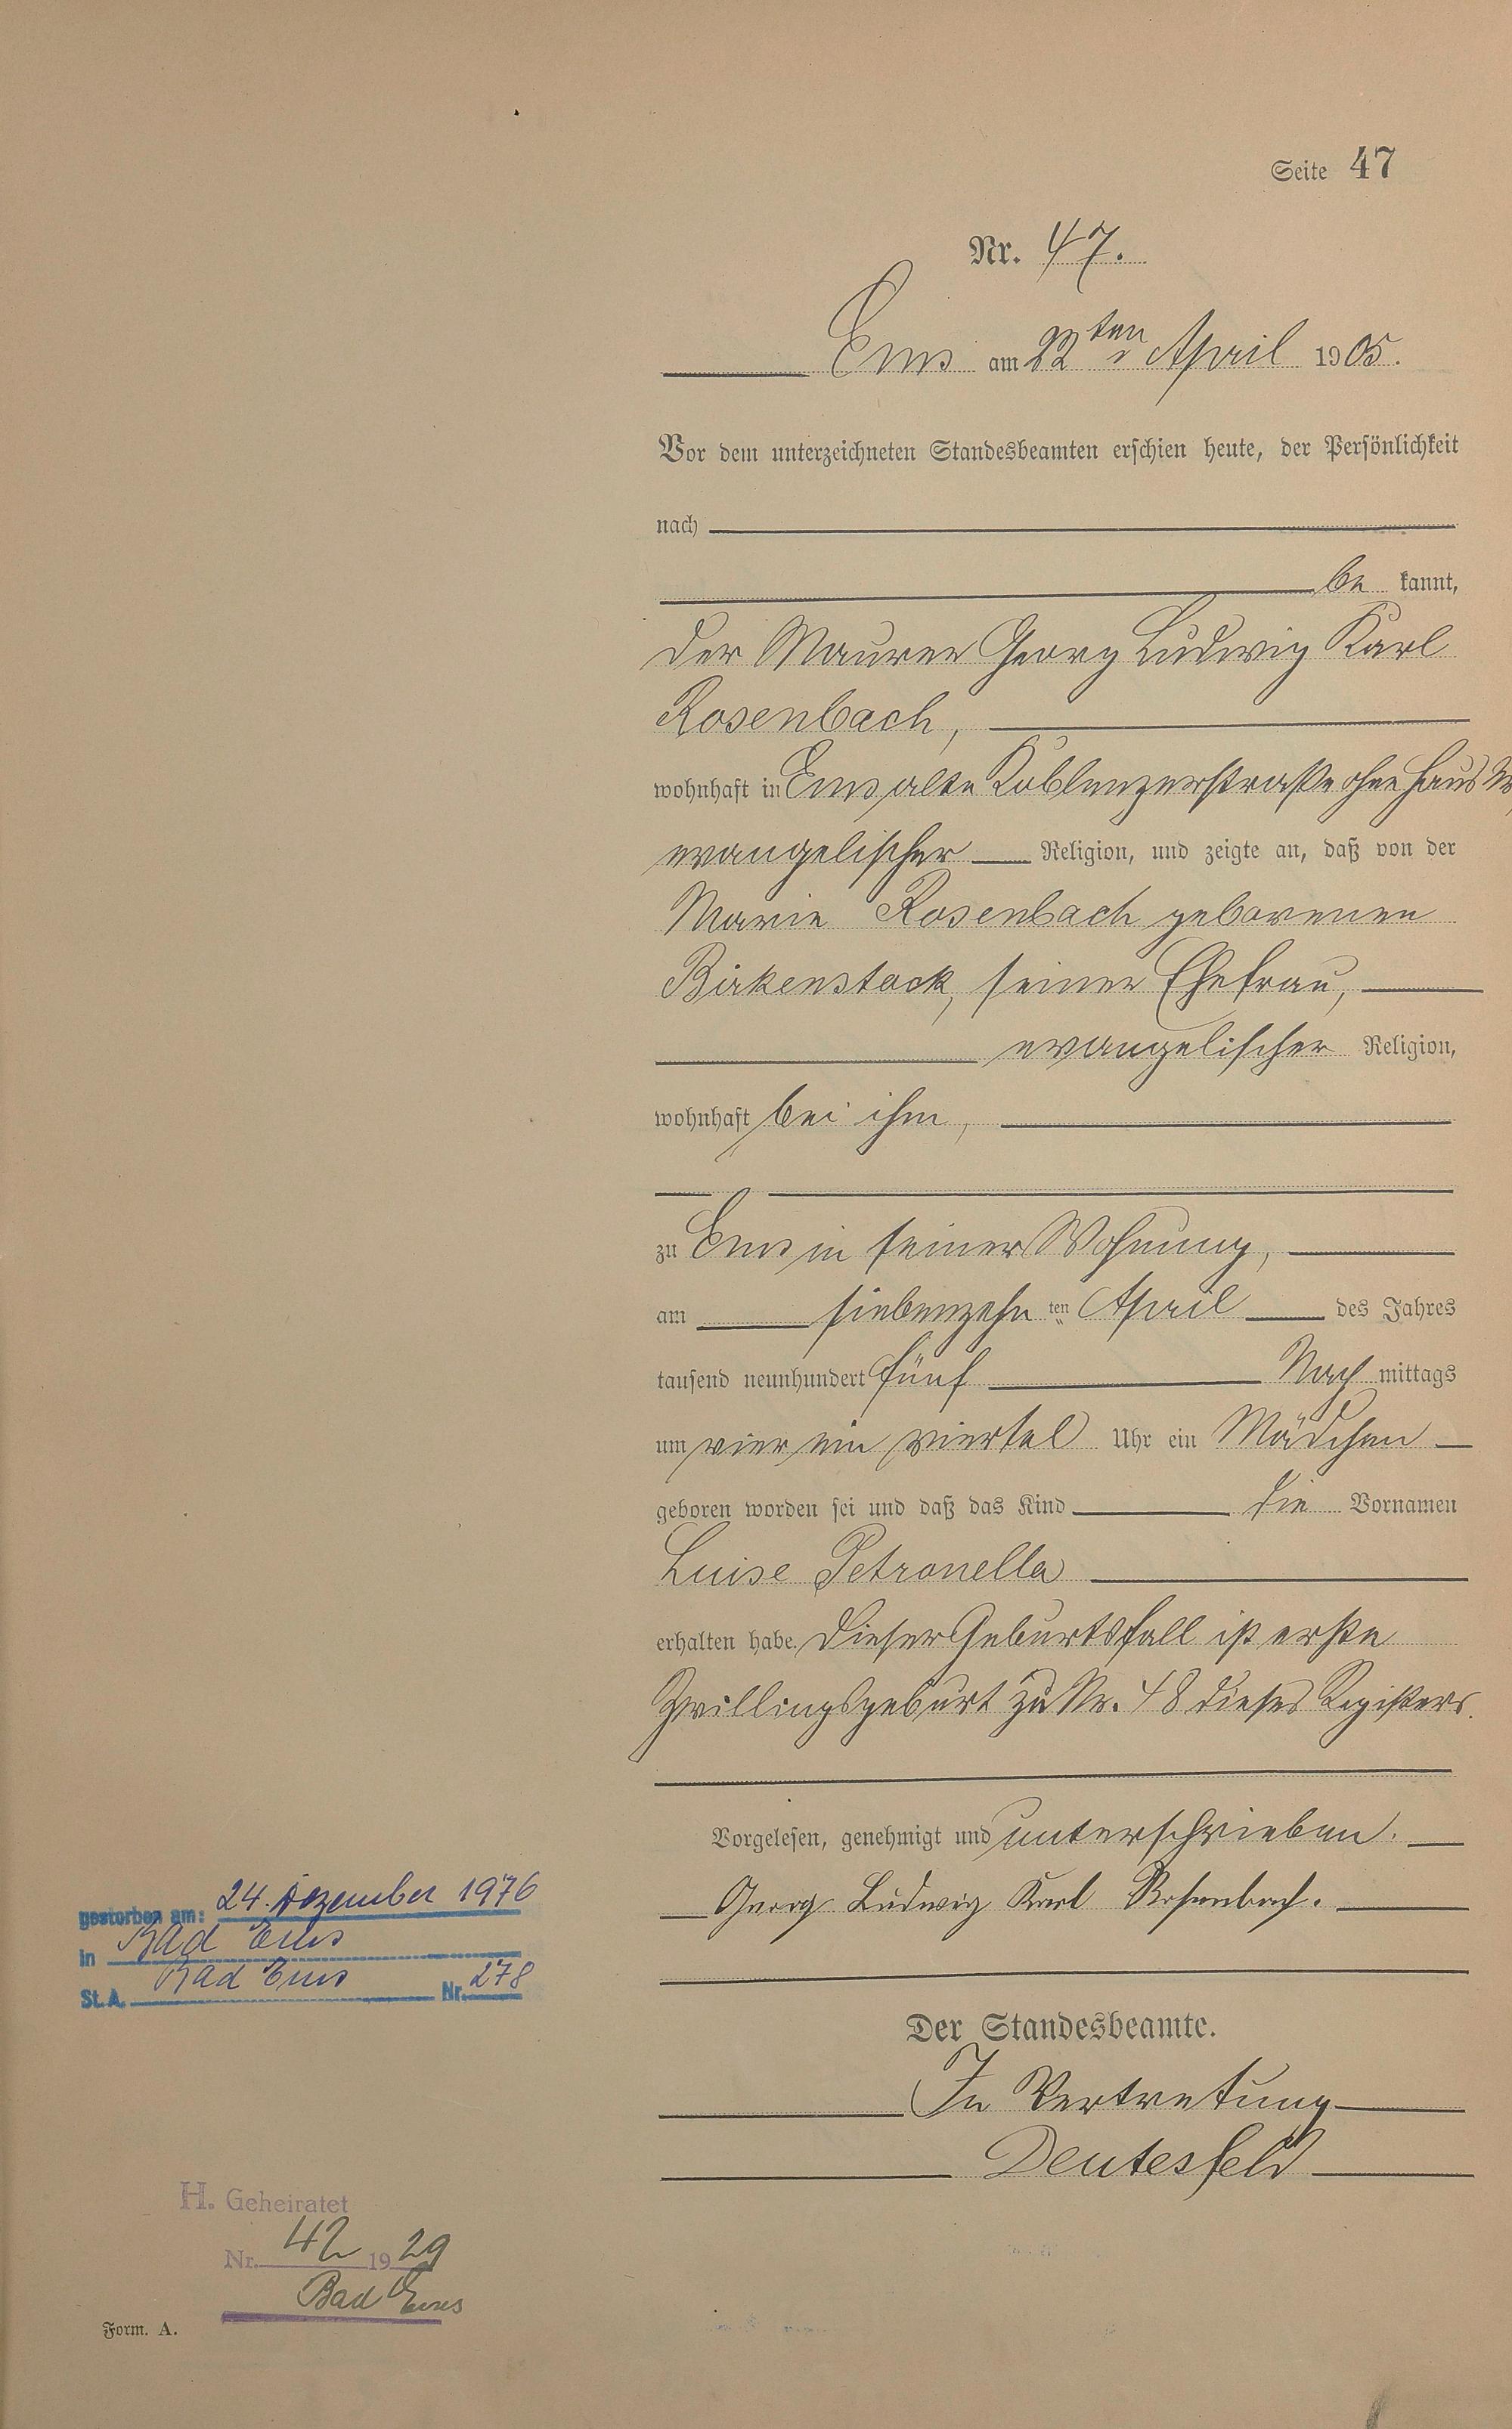 Seite 47
Nr. 47.
Ems am 22ten April 1905.
Vor dem unterzeichneten Standesbeamten erschien heute, der Persönlichkeit
nach
be kannt,
der Maurer Georg Ludwig Karl
Rosenbach,
wohnhaft in Ems alte Koblenzerstraße ohne Haus Nr,
evangelischer Religion, und zeigte an, daß von der
Marie Rosenbach geborenen
Birkenstock, seiner Ehefrau,
evangelischer Religion,
wohnhaft bei ihm,
zu Ems in seiner Wohnung,
am siebenzehn ten April des Jahres
tausend neunhundert fünf Nach mittags
um vier ein viertel Uhr ein Mädchen
geboren worden sei und daß das Kind die Vornamen
Luise Petronella
erhalten habe. Dieser Geburtsfall ist erste
Zwillingsgeburt zu Nr. 48 dieses Registers.
Vorgelesen, genehmigt und unterschrieben.
Georg Ludwig Karl Rosenbach.
Der Standesbeamte.
In Vertretung
Deutesfeld
gestorben am: 24. Dezember 1976
in Bad Ems
St. A. Bad Ems Nr. 278
H. Geheiratet
Nr. 42 1929
Bad Ems
Form. A.